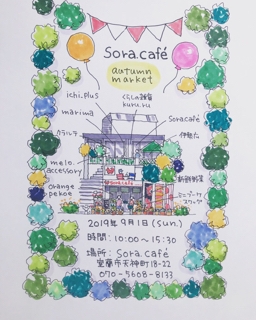 Sora.café
autumn
market
ichi.plus
くらしの雑貨
kuru.ru
marima
Sora.café
melo.
accessory
orange
pekoe
2019年 9月1日 (sun.)
時間: 10:00〜15:30
場所: Sora.café
室蘭市天神町18-22
070-5608-8133